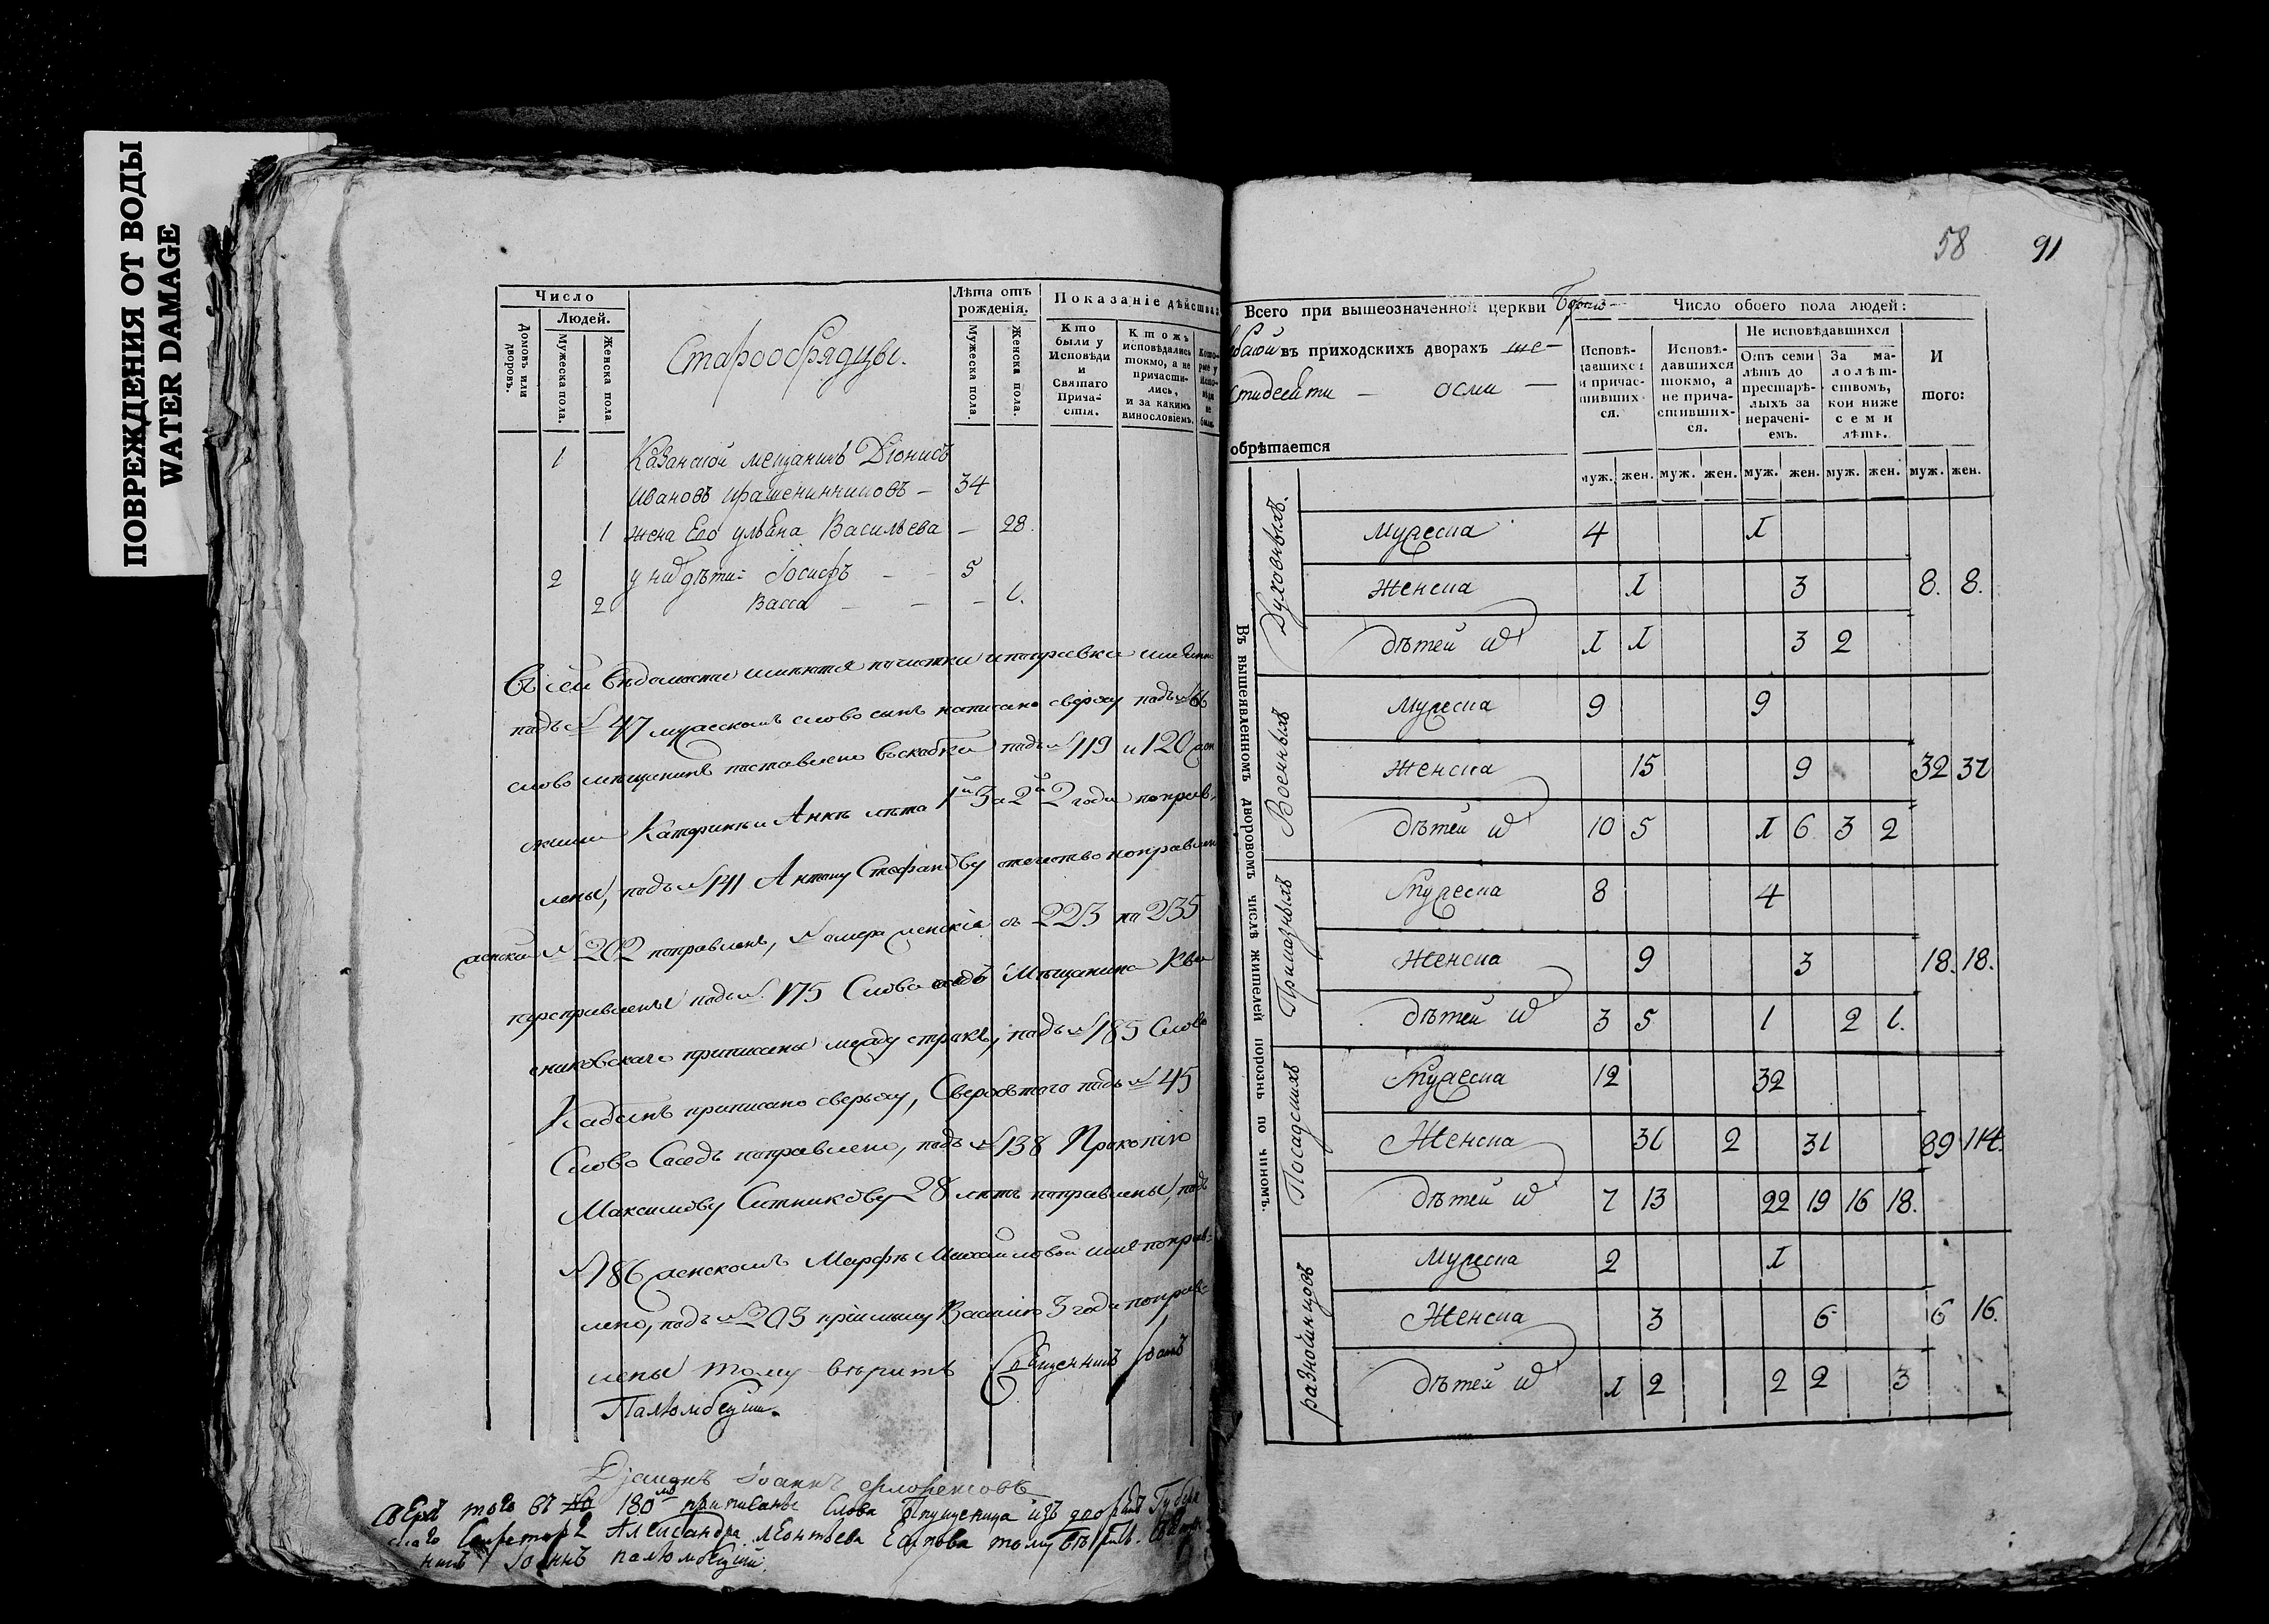 ПОВРЕЖДЕНИЯ ОТ ВОДЫ
WATER DAMAGE
Число
Лѣта отъ рожденія.
Показаніе дѣйства
Людей.
Домовъ или дворовъ.
Мужеска пола.
Женска пола
Старообрядцы.
Мужеска пола.
Женска пола.
Кто были у Исповѣди и Святаго Причастія.
Ктожъ исповѣдались токмо, а не причастились, и за какимъ винословіемъ.
Которые у Исповѣди не были.
1 Казанской мещанинъ Діонисъ
Ивановъ Крашенинниковъ — 34
1 жена Его ульяна Васильева — 28.
2 у них дѣти: Іосифъ — — 5
2 Васса — — — 1.
Въ сей вѣдомости имѣются почистки и поправки именно
подъ № 47 мужескомъ слово сынъ написано сверху подъ № 66
слово мѣщанинъ поставлено въ скобки подъ № 119 и 120 жен
скими Катеринѣ и Аннѣ лѣта 1й 3 а 2й 2 года поправ-
лены, подъ № 141 Антону Стефанову отечество поправлено
женской № 202 поправленъ, № номера женскіе съ 223 по 235
переправлены подъ № 175 Слово мѣщанина Ква
сниковскаго приписаны между строкъ, подъ № 185 Слово
приписано сверьху, Сверхъ того подъ № 45
Слово Соседъ поправлено, подъ № 138 Прокопію
Максимову Ситникову 28 лѣтъ поправлены, подъ
№ 186 женскомъ Марфѣ Михайловой имя поправ-
лено, подъ № 203 пріемышу Василію 3 года поправ-
лены тому вѣритъ Священникъ Іоаннъ
Палюмбецкій.
Дьяконъ Іоаннъ Флоренсовъ
сверхъ того въ № 180мъ приписаны слова
Секретаря Александра Леонтьева тому вѣритъ
Іоаннъ палюмбецкій.
58 91
Всего при вышеозначенной церкви
въ приходскихъ дворахъ ше-
стидесяти — осми —
обрѣтается
Число обоего пола людей:
Исповѣдавшихся и причастившихся.
Исповѣдавшихся токмо, а не причастившихся.
Не исповѣдавшихся
Отъ семи лѣтъ до престарѣлыхъ за нераченіемъ.
За малолѣтствомъ, кои ниже семи лѣтъ.
И того:
муж. жен. муж. жен. муж. жен. муж. жен. муж. жен.
Въ вышеявленномъ дворовомъ числѣ жителей порознь по чиномъ.
Духовныхъ.
Мужеска 4 1
Женска 1 3 8. 8.
дѣтей ихъ 1 1 3 2
Военныхъ
Мужеска 9 9
Женска 15 9 32 37
дѣтей ихъ 10 5 1 6 3 2
Приказныхъ
Мужеска 8 4
Женска 9 3 18. 18.
дѣтей ихъ 3 5 1 2 1.
Посадскихъ
Мужеска 12 32
Женска 31 2 31 89 114.
дѣтей ихъ 7 13 22 19 16 18.
разночинцовъ
Мужеска 2 1
Женска 3 6 6 16.
дѣтей ихъ 1 2 2 2 3